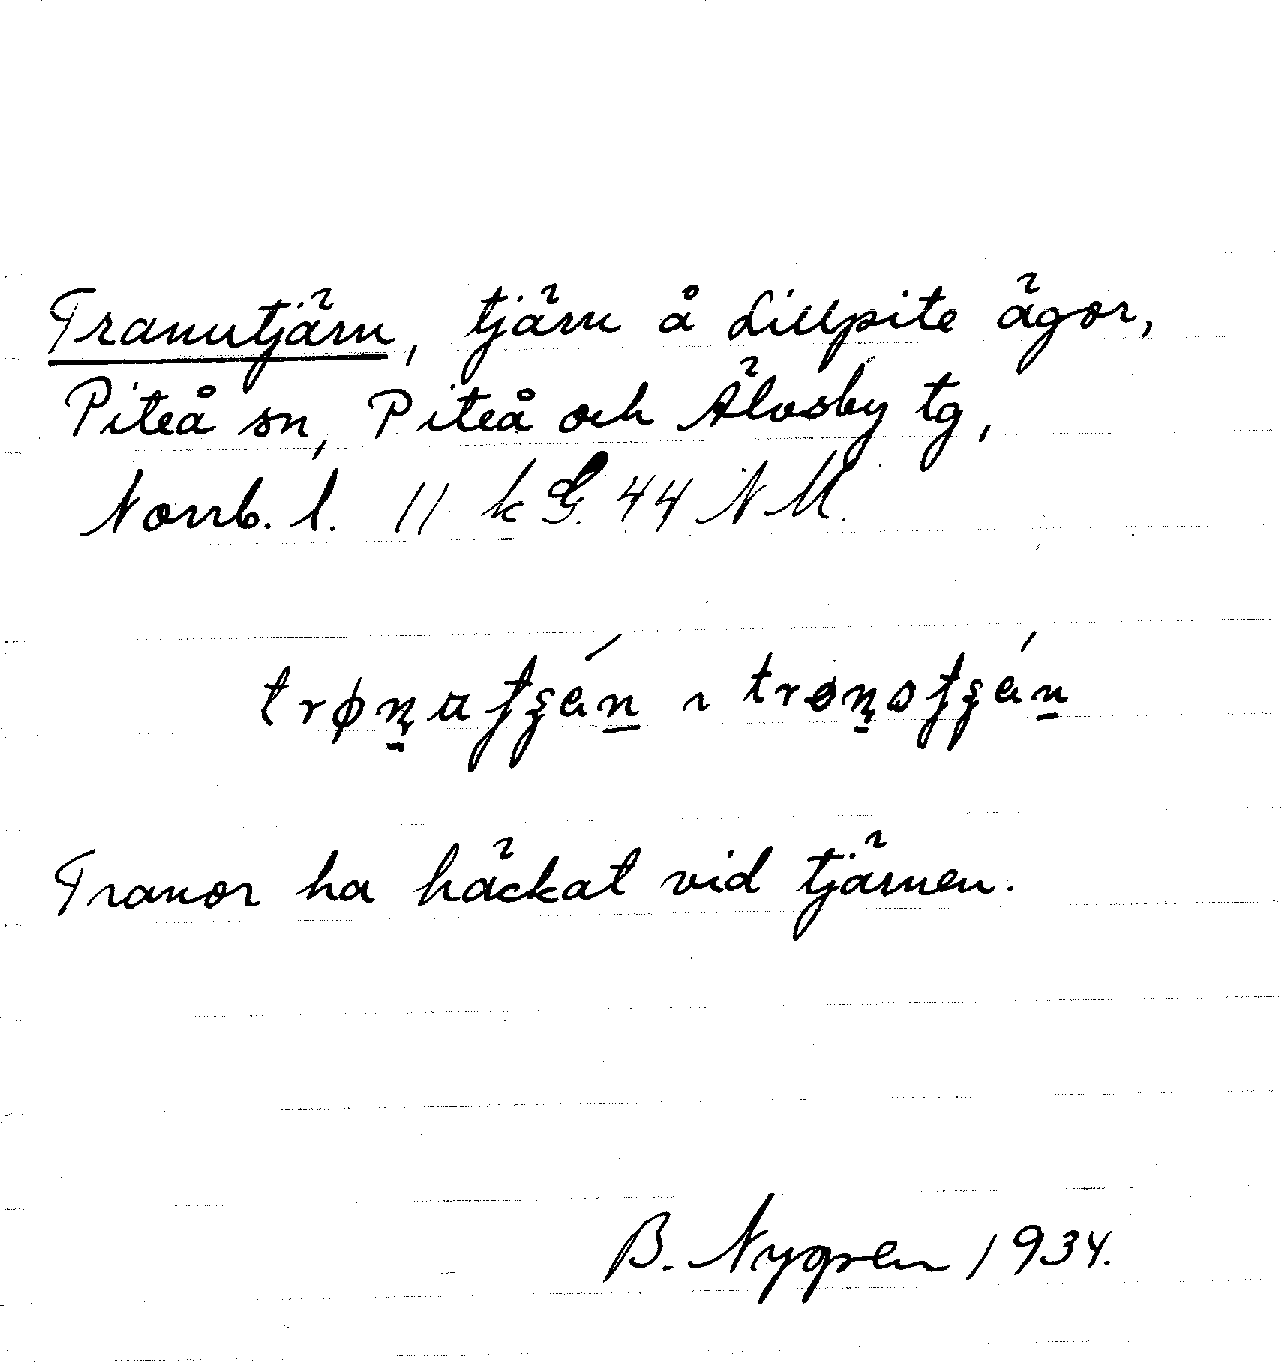 Tranutjärn, tjärn å Lillpite ägor,
Piteå sn, Piteå och Älvsby tg,
Norrb. l. 11 k G. 44 N M.
Tranor ha häckat vid tjärnen.
B. Nygren 1934.